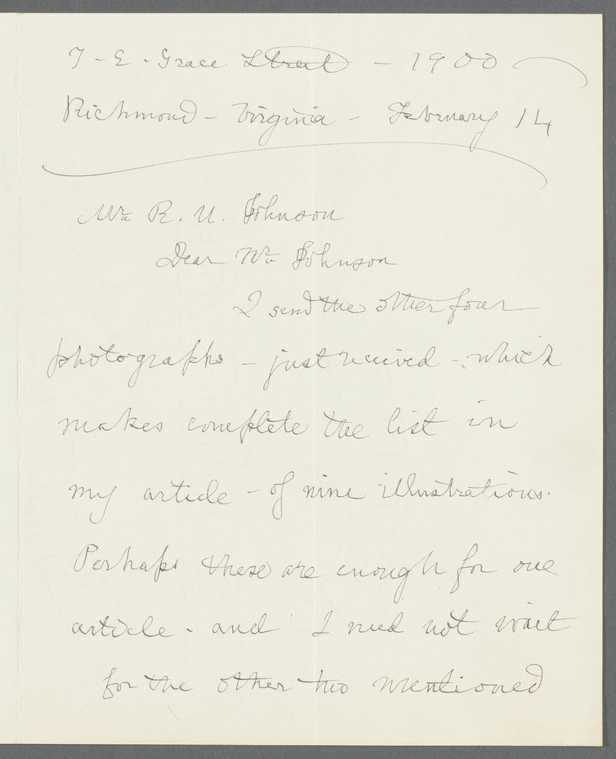 7 - E - Grace Street - 1900
Richmond - Virginia - February 14
Mr R. U. Johnson
Dear Mr Johnson
I send the other four
photographs - just received - which
makes complete the list in
my article - of nine illustrations.
Perhaps these are enough for one
article - and I need not wait
for the other two mentioned